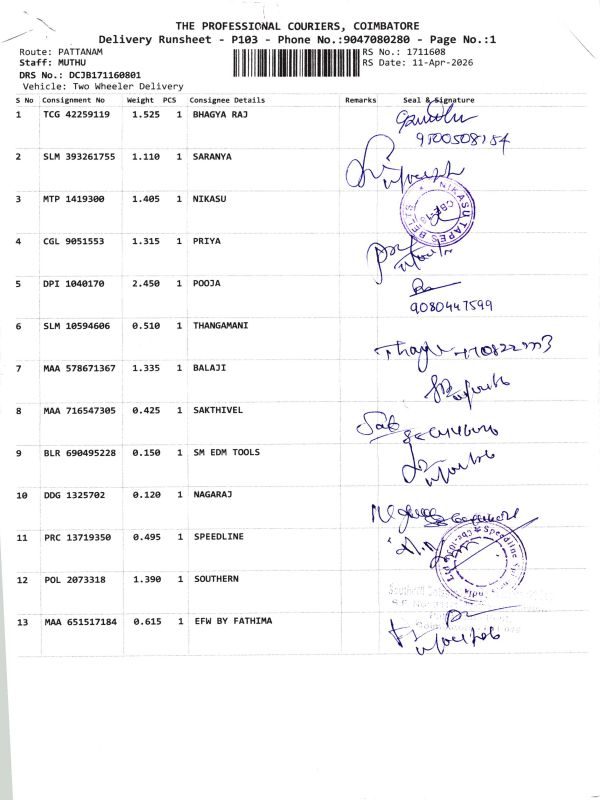 THE PROFESSIONAL COURIERS, COIMBATORE
Delivery Runsheet - P103 - Phone No.:9047080280 - Page No.:1
Route: PATTANAM RS No.: 1711608
Staff: MUTHU RS Date: 11-Apr-2026
DRS No.: DCJB171160801
Vehicle: Two Wheeler Delivery
S No Consignment No Weight PCS Consignee Details Remarks Seal & Signature
1 TCG 42259119 1.525 1 BHAGYA RAJ
2 SLM 393261755 1.110 1 SARANYA
3 MTP 1419300 1.405 1 NIKASU
NIKASU TAPES BELTS
4 CGL 9051553 1.315 1 PRIYA
5 DPI 1040170 2.450 1 POOJA
9080447599
6 SLM 10594606 0.510 1 THANGAMANI
7 MAA 578671367 1.335 1 BALAJI
8 MAA 716547305 0.425 1 SAKTHIVEL
9 BLR 690495228 0.150 1 SM EDM TOOLS
10 DDG 1325702 0.120 1 NAGARAJ
11 PRC 13719350 0.495 1 SPEEDLINE
12 POL 2073318 1.390 1 SOUTHERN
13 MAA 651517184 0.615 1 EFW BY FATHIMA